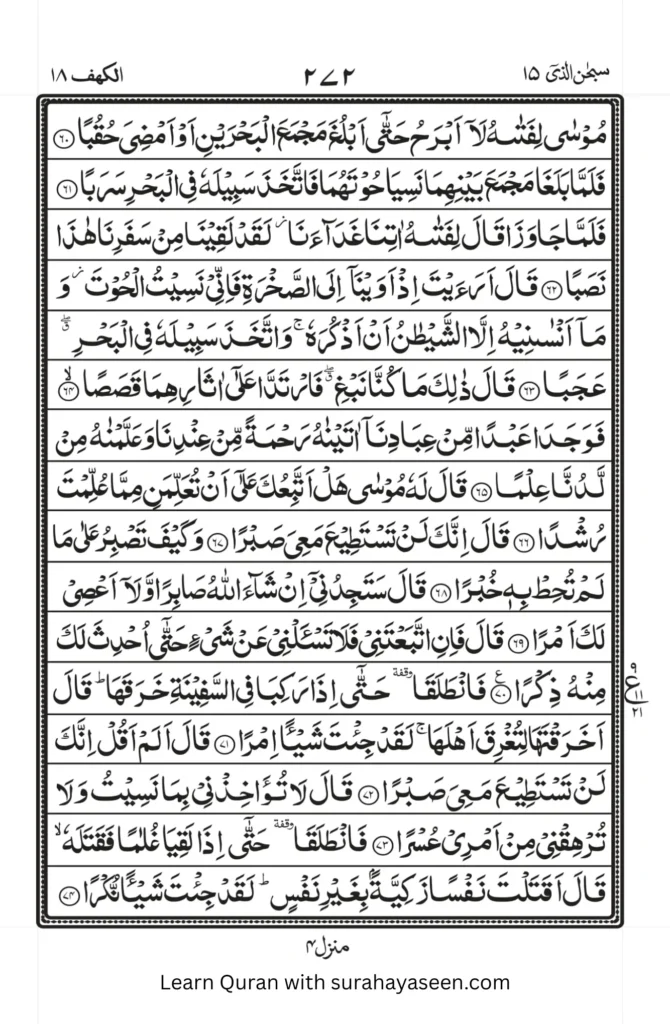 سبحٰن الذیٓ ۱۵
۲۷۲
الکهف ۱۸
مُوۡسٰى لِفَتٰٮهُ لَاۤ اَبۡرَحُ حَتّٰۤى اَبۡلُغَ مَجۡمَعَ الۡبَحۡرَيۡنِ اَوۡ اَمۡضِىَ حُقُبًا ﴿۶۰﴾
فَلَمَّا بَلَغَا مَجۡمَعَ بَيۡنِهِمَا نَسِيَا حُوۡتَهُمَا فَاتَّخَذَ سَبِيۡلَهٗ فِى الۡبَحۡرِ سَرَبًا ﴿۶۱﴾
فَلَمَّا جَاوَزَا قَالَ لِفَتٰٮهُ اٰتِنَا غَدَآءَنَا لَقَدۡ لَقِيۡنَا مِنۡ سَفَرِنَا هٰذَا
نَصَبًا ﴿۶۲﴾ قَالَ اَرَءَيۡتَ اِذۡ اَوَيۡنَاۤ اِلَى الصَّخۡرَةِ فَاِنِّىۡ نَسِيۡتُ الۡحُوۡتَ وَ
مَاۤ اَنۡسٰٮنِيۡهُ اِلَّا الشَّيۡطٰنُ اَنۡ اَذۡكُرَهٗ‌ۚ وَاتَّخَذَ سَبِيۡلَهٗ فِى الۡبَحۡرِ ‌ۖق
عَجَبًا ﴿۶۳﴾ قَالَ ذٰلِكَ مَا كُنَّا نَبۡغِ‌ ۖق فَارۡتَدَّا عَلٰٓى اٰثَارِهِمَا قَصَصًا ۙ‏﴿۶۴﴾
فَوَجَدَا عَبۡدًا مِّنۡ عِبَادِنَاۤ اٰتَيۡنٰهُ رَحۡمَةً مِّنۡ عِنۡدِنَا وَعَلَّمۡنٰهُ مِنۡ
لَّدُنَّا عِلۡمًا ﴿۶۵﴾ قَالَ لَهٗ مُوۡسٰى هَلۡ اَتَّبِعُكَ عَلٰٓى اَنۡ تُعَلِّمَنِ مِمَّا عُلِّمۡتَ
رُشۡدًا ﴿۶۶﴾ قَالَ اِنَّكَ لَنۡ تَسۡتَطِيۡعَ مَعِىَ صَبۡرًا ﴿۶۷﴾ وَكَيۡفَ تَصۡبِرُ عَلٰى مَا
لَمۡ تُحِطۡ بِهٖ خُبۡرًا ﴿۶۸﴾ قَالَ سَتَجِدُنِىۡۤ اِنۡ شَآءَ اللّٰهُ صَابِرًا وَّلَاۤ اَعۡصِىۡ
لَكَ اَمۡرًا ﴿۶۹﴾ قَالَ فَاِنِ اتَّبَعۡتَنِىۡ فَلَا تَسۡــَٔلۡنِىۡ عَنۡ شَىۡءٍ حَتّٰٓى اُحۡدِثَ لَكَ
مِنۡهُ ذِكۡرًا ﴿۷۰﴾ ع فَانْطَلَقَا وقفة حَتّٰۤى اِذَا رَكِبَا فِى السَّفِيۡنَةِ خَرَقَهَا‌ؕ قَالَ
اَخَرَقۡتَهَا لِتُغۡرِقَ اَهۡلَهَا‌ۚ لَقَدۡ جِئۡتَ شَيۡـًٔـا اِمۡرًا ﴿۷۱﴾ قَالَ اَلَمۡ اَقُلۡ اِنَّكَ
لَنۡ تَسۡتَطِيۡعَ مَعِىَ صَبۡرًا ﴿۷۲﴾ قَالَ لَا تُؤَاخِذۡنِىۡ بِمَا نَسِيۡتُ وَلَا
تُرۡهِقۡنِىۡ مِنۡ اَمۡرِىۡ عُسۡرًا ﴿۷۳﴾ فَانْطَلَقَا وقفة حَتّٰۤى اِذَا لَقِيَا غُلٰمًا فَقَتَلَهٗ ۙ
قَالَ اَقَتَلۡتَ نَفۡسًا زَكِيَّةً ۢ بِغَيۡرِ نَفۡسٍ ؕ لَـقَدۡ جِئۡتَ شَيۡـًٔـا نُّكۡرًا ﴿۷۴﴾
۹
ع
۱۱
۲۱
منزل ۴
Learn Quran with surahayaseen.com